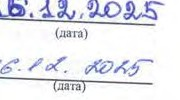 16.12.2025
(дата)
6.12. 2025
(дата)